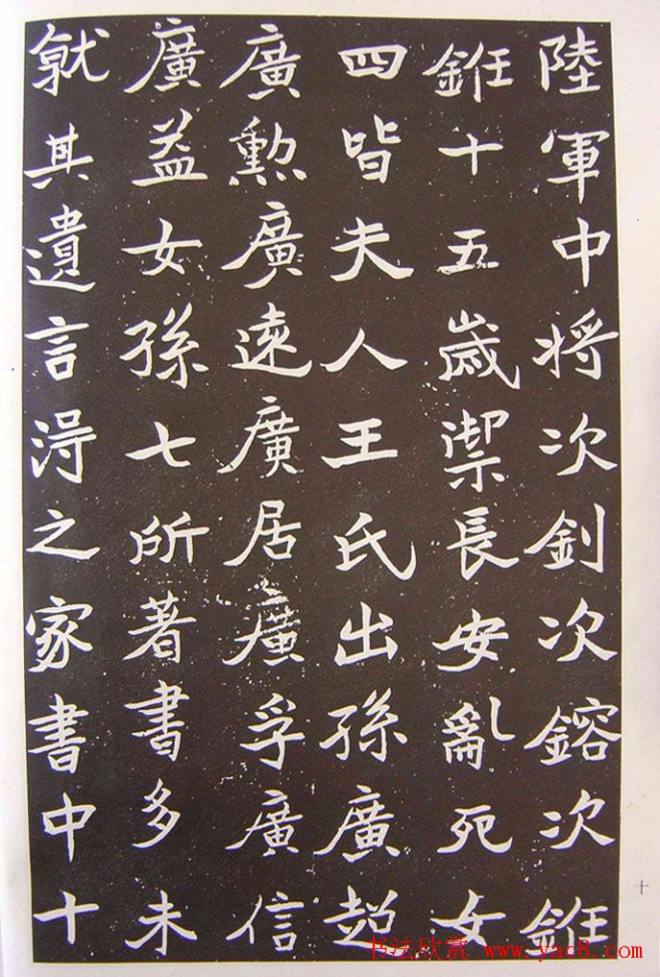 陸軍中将次釗次鎔次錐
錐十五歲禦長安亂死女
四皆夫人王氏出孫廣超
廣勲廣遠廣居廣廣孚廣信
廣益女孫七所著書多未
就其遺言淂之家書中十
十
书法欣赏 www.yac8.com